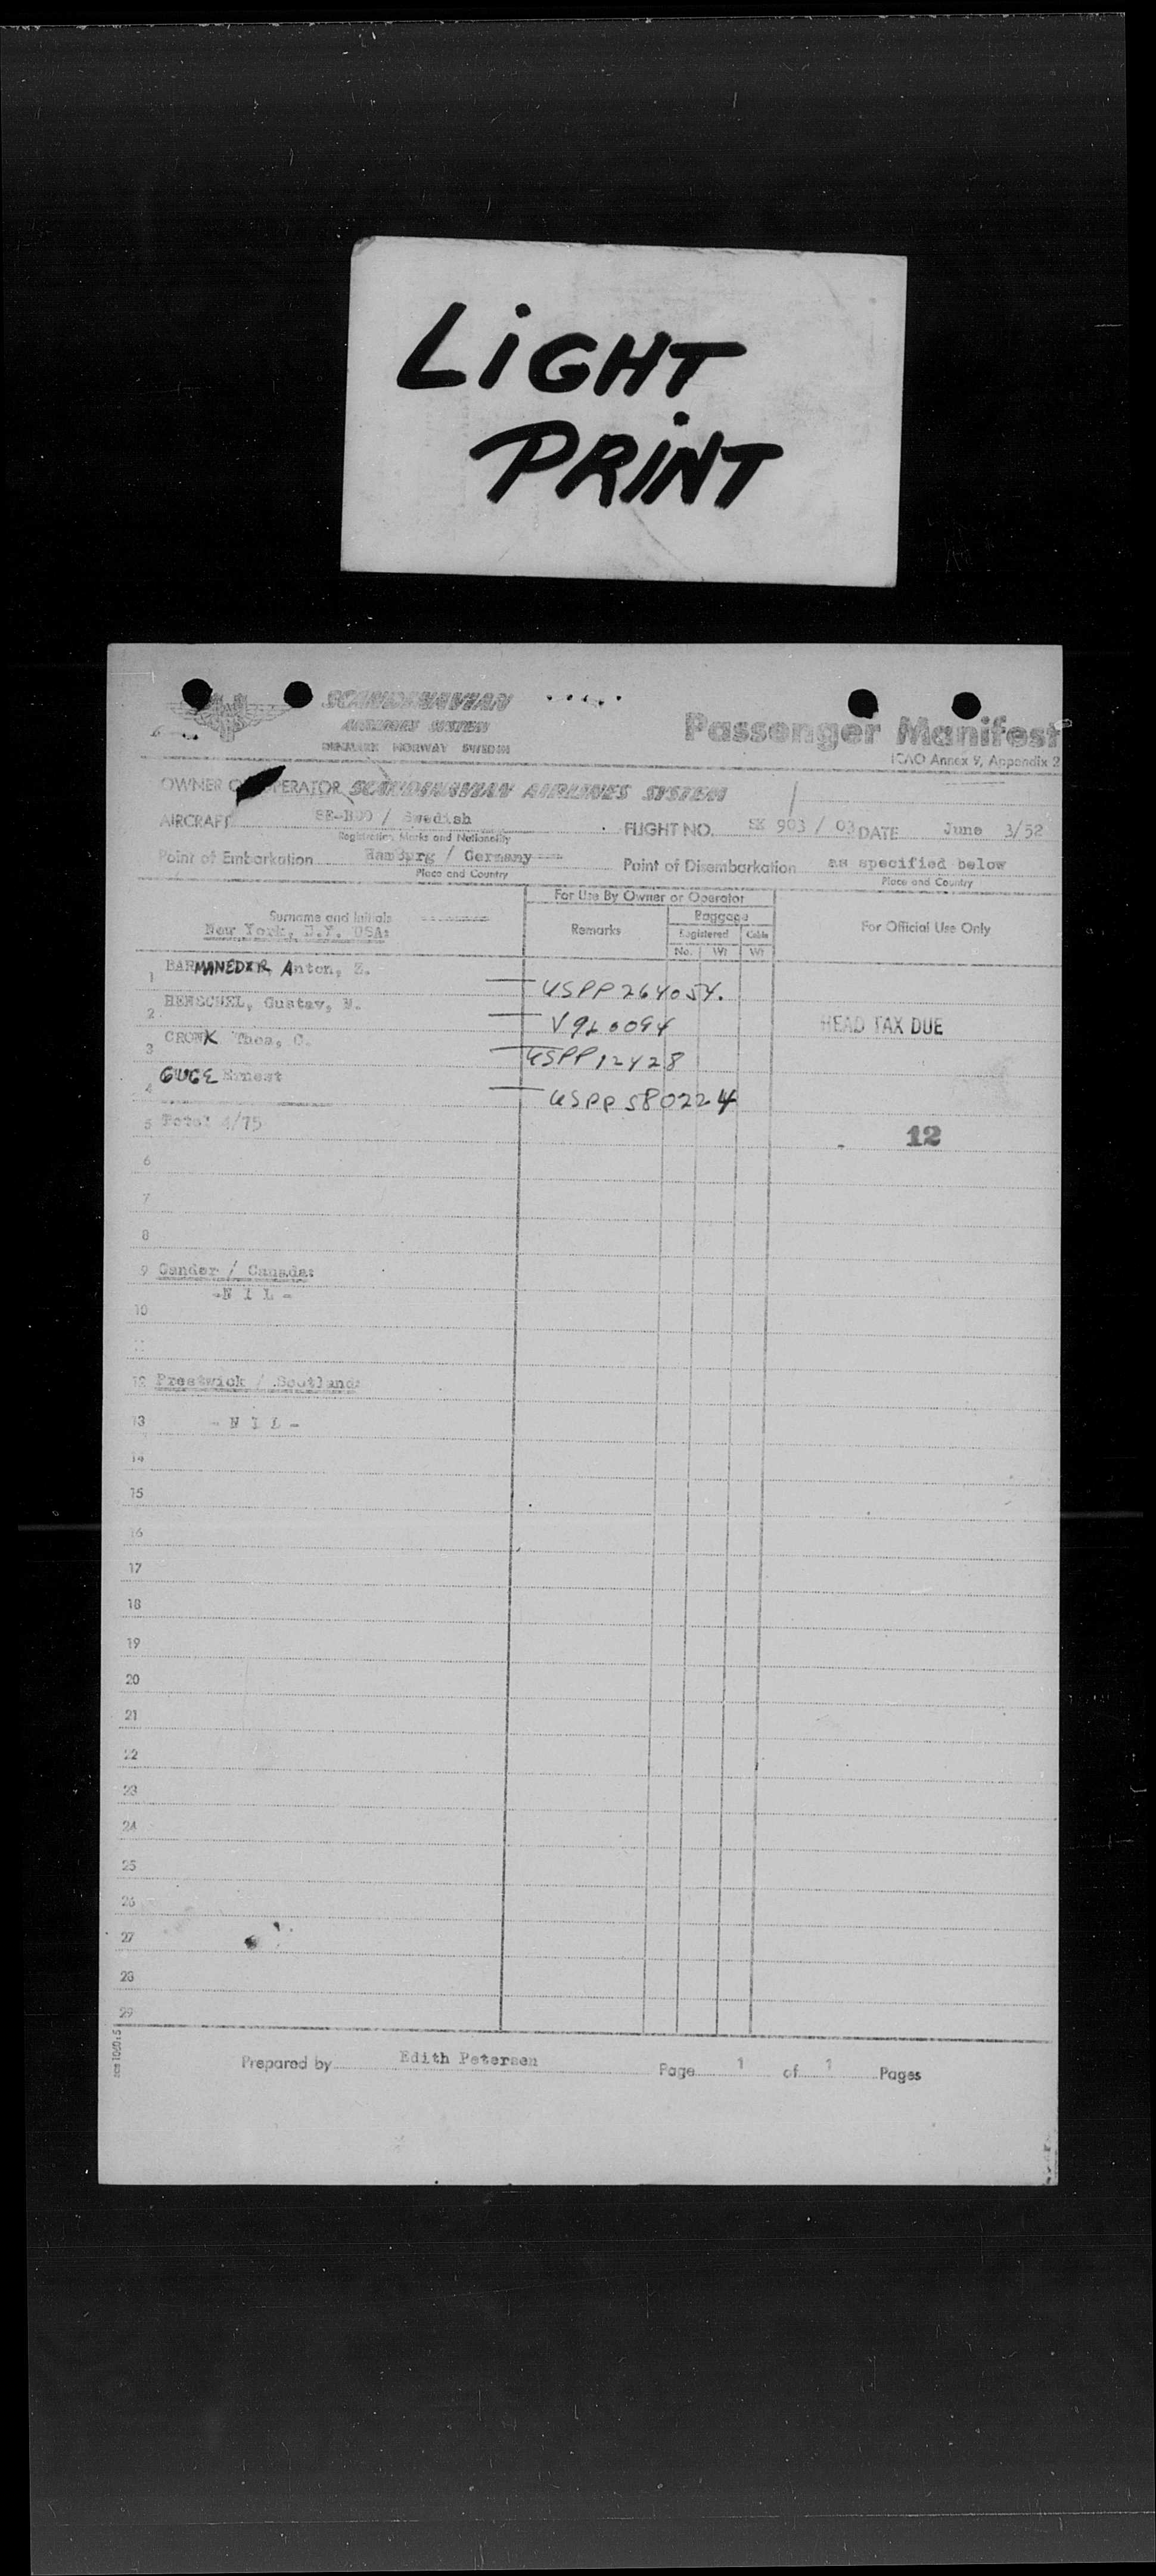 LiGHT
PRiNT
SCANDINAVIAN
AIRLINES SYSTEM
DENMARK NORWAY SWEDEN
Passenger Manifest
ICAO Annex 9, Appendix 2
OWNER OPERATOR SCANDINAVIAN AIRLINES SYSTEM
AIRCRAFT / Swedish FLIGHT NO. SK 903 / 03 DATE June 3/52
Registration Marks and Nationality
Point of Embarkation Hamburg / Germany Point of Disembarkation as specified below
Place and Country Place and Country
For Use By Owner or Operator
Surname and Initials Remarks Baggage For Official Use Only
New York, N.Y. USA: Registered
No. Wt Wt
1 BARMANEDER, Anton, Z. USPP 264054.
2 HENSCHEL, Gustav, HEAD TAX DUE
3 CRONK Thos, C. USPP 12428
4 GUGE Ernest USPP 580224
5 Total 4/75 12
6
7
8
9 Gander / Canada:
- N I L -
10
11
12 Prestwick / Scotland:
13 - N I L -
14
15
16
17
18
19
20
21
22
23
24
25
26
27
28
29
Prepared by Edith Petersen Page 1 of 1 Pages